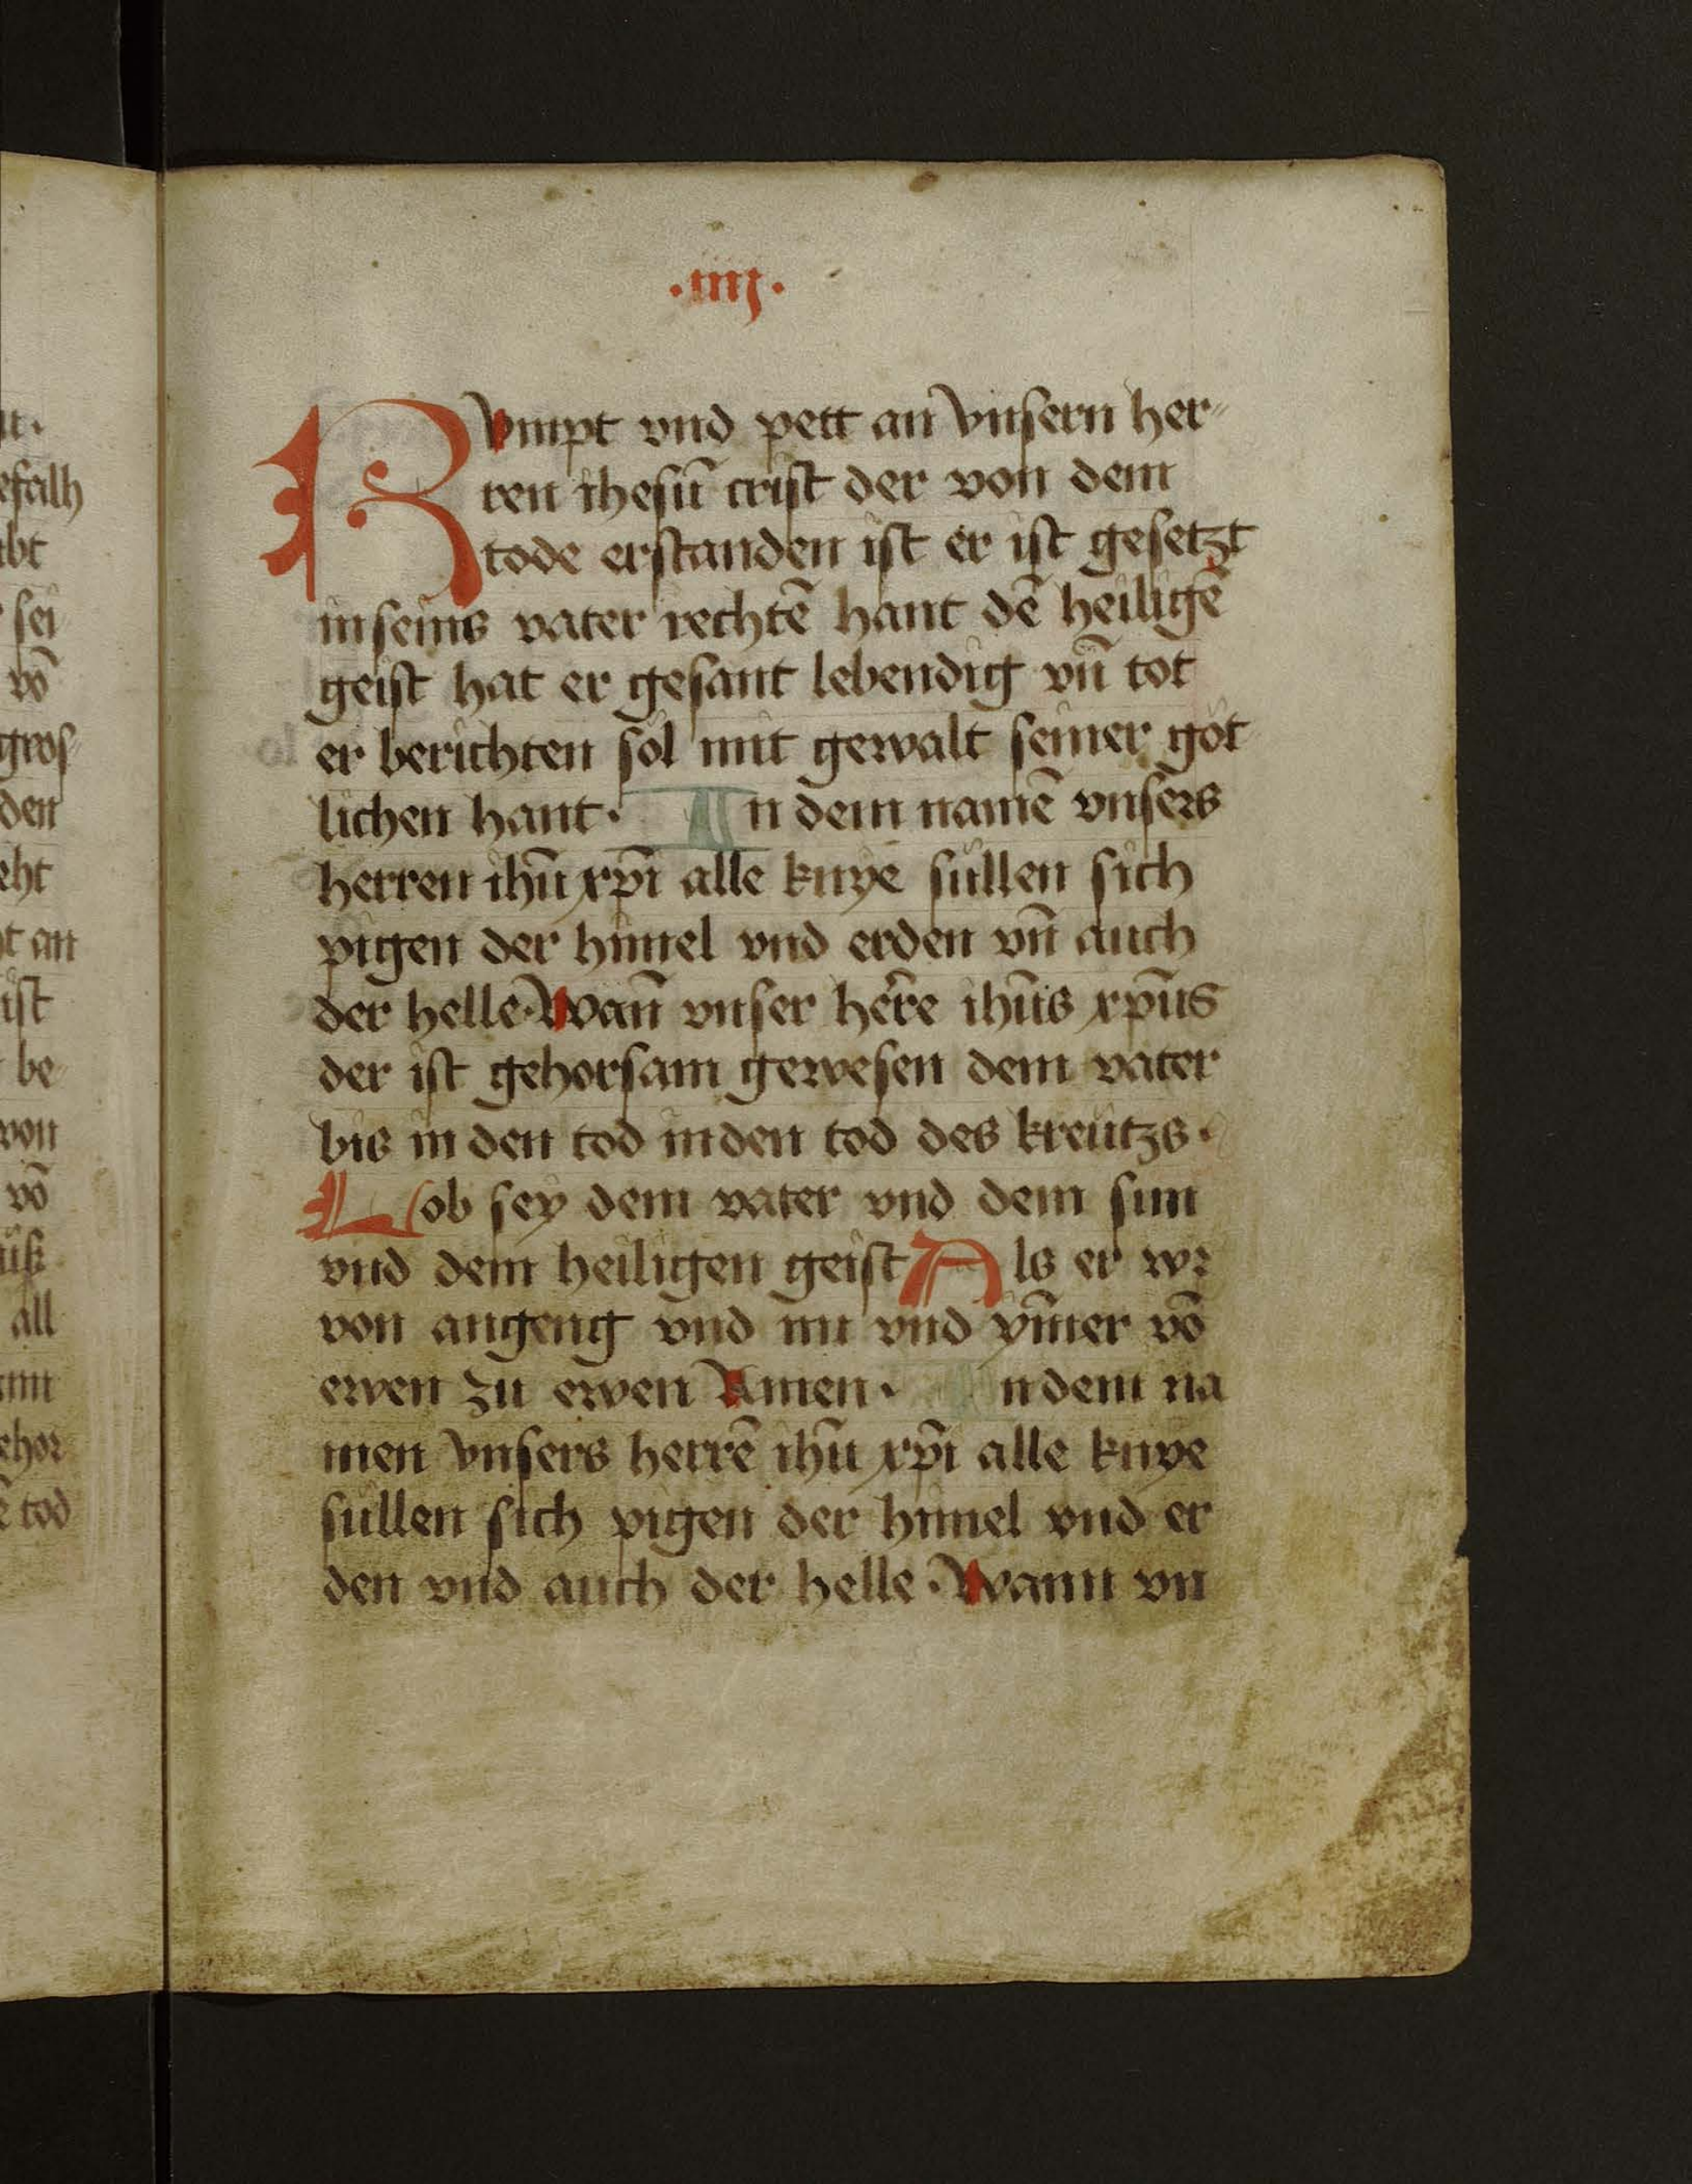 ·iiij·
KVmpt vnd pett an vnsern her-
ren ihesū crist der von dem
tode erstanden ist er ist gesetzt
in seins vater rechtē hant dē heiligē
geist hat er gesant lebendig vn̄ tot
er berichten sol mit gewalt seiner got
lichen hant· In dem namē vnsers
herren ihū xp̄i alle knye sullen sich
pigen der himel vnd erden vn̄ auch
der helle· Wan̄ vnser her̄e ihūs xp̄us
der ist gehorsam gewesen dem vater
bis in den tod in den tod des kreutzs·
Lob sey dem vater vnd dem sun
vnd dem heiligen geist Als er wr
von angeng vnd nu vnd ym̄er vō
ewen zu ewen Amen· In dem na
men vnsers herrē ihū xp̄i alle knye
sullen sich pigen der himel vnd er
den vnd auch der helle· Wann vn